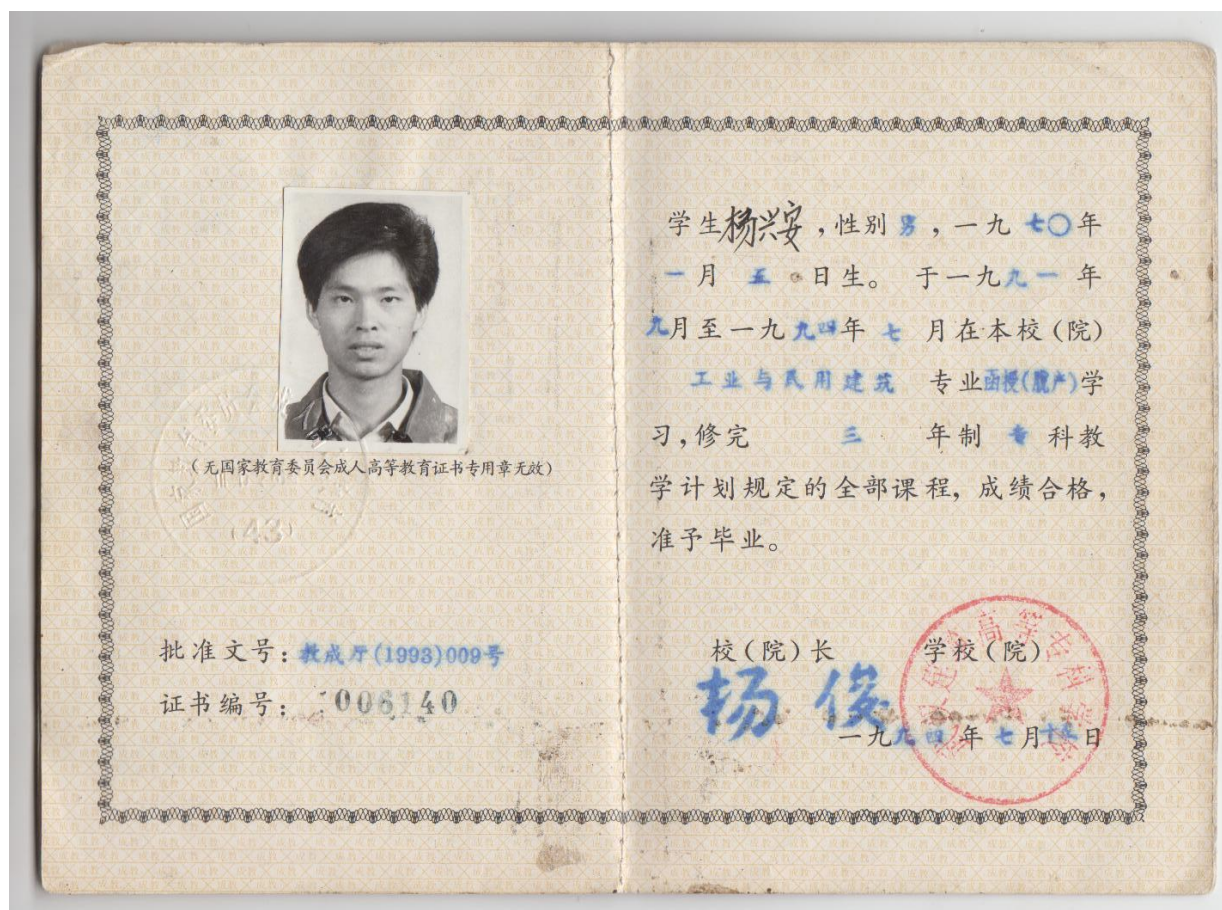 （无国家教育委员会成人高等教育证书专用章无效）
(43)
批准文号：教成厅(1993)009号
证书编号：006140
学生杨兴安，性别男，一九七〇年
一月五日生。于一九九一年
九月至一九九四年七月在本校（院）
工业与民用建筑 专业函授(脱产)学
习，修完 三 年制 专 科教
学计划规定的全部课程，成绩合格，
准予毕业。
校（院）长 学校（院）
杨俊
一九九四年七月 日
高等专科学校